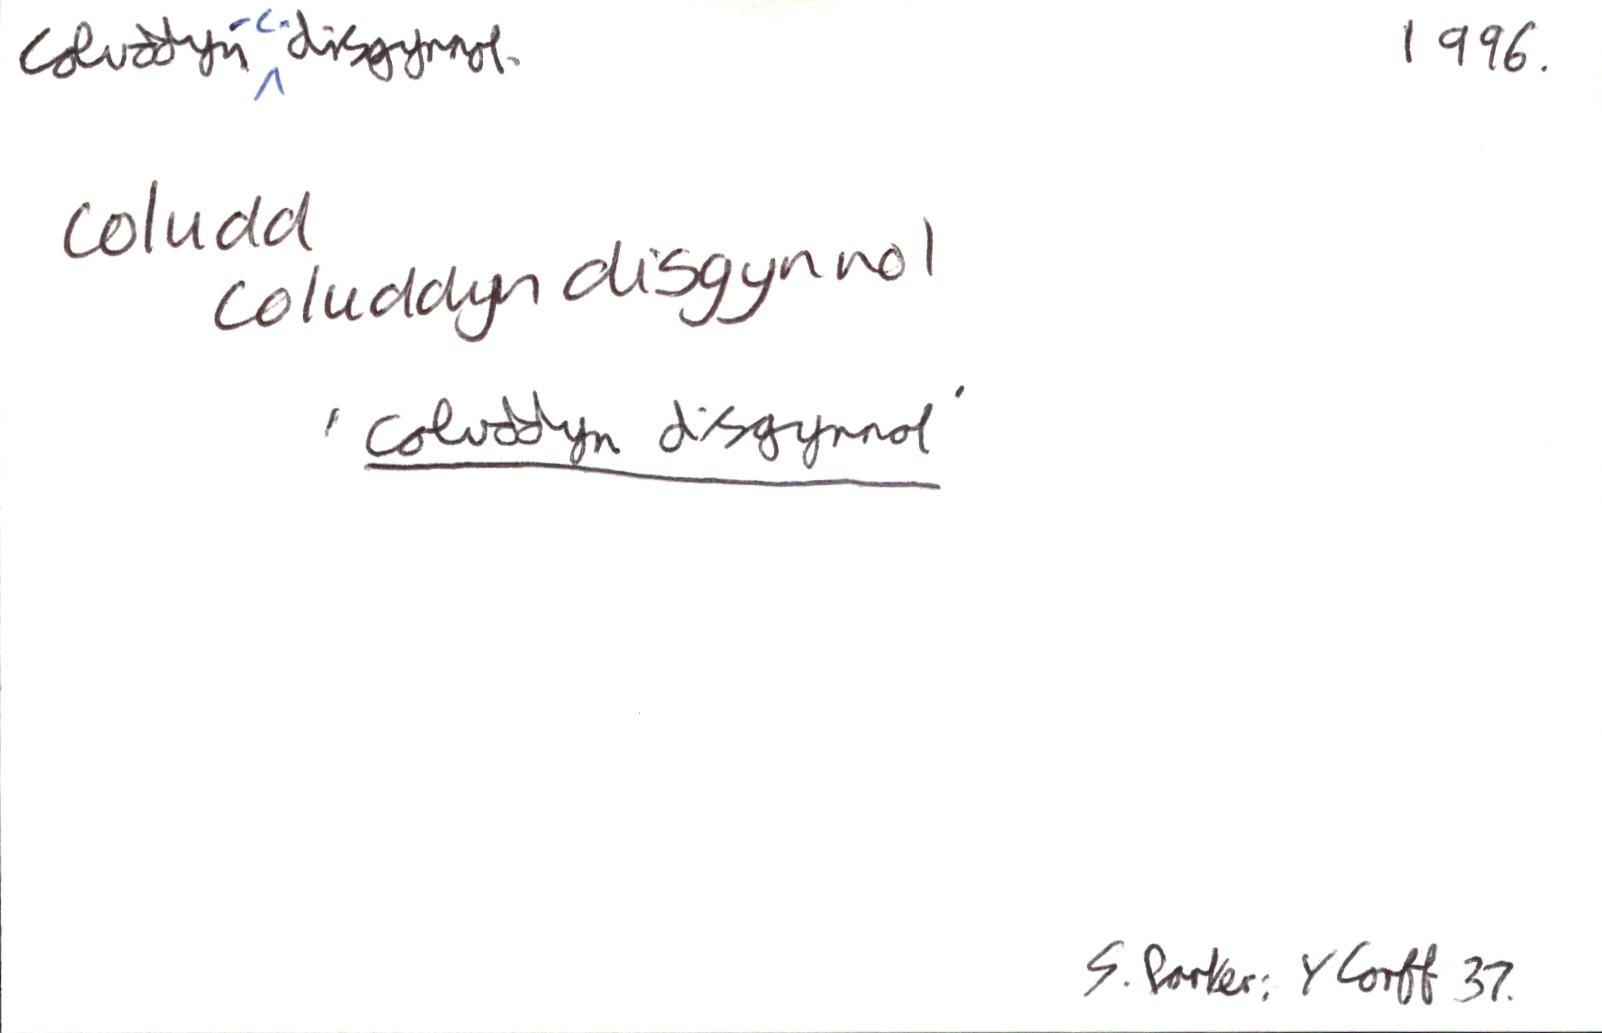 coluddyn -c. disgynnol. 1996.
coludd
coluddyn disgynnol
'coluddyn disgynnol'
S. Parker: Y Corff 37.